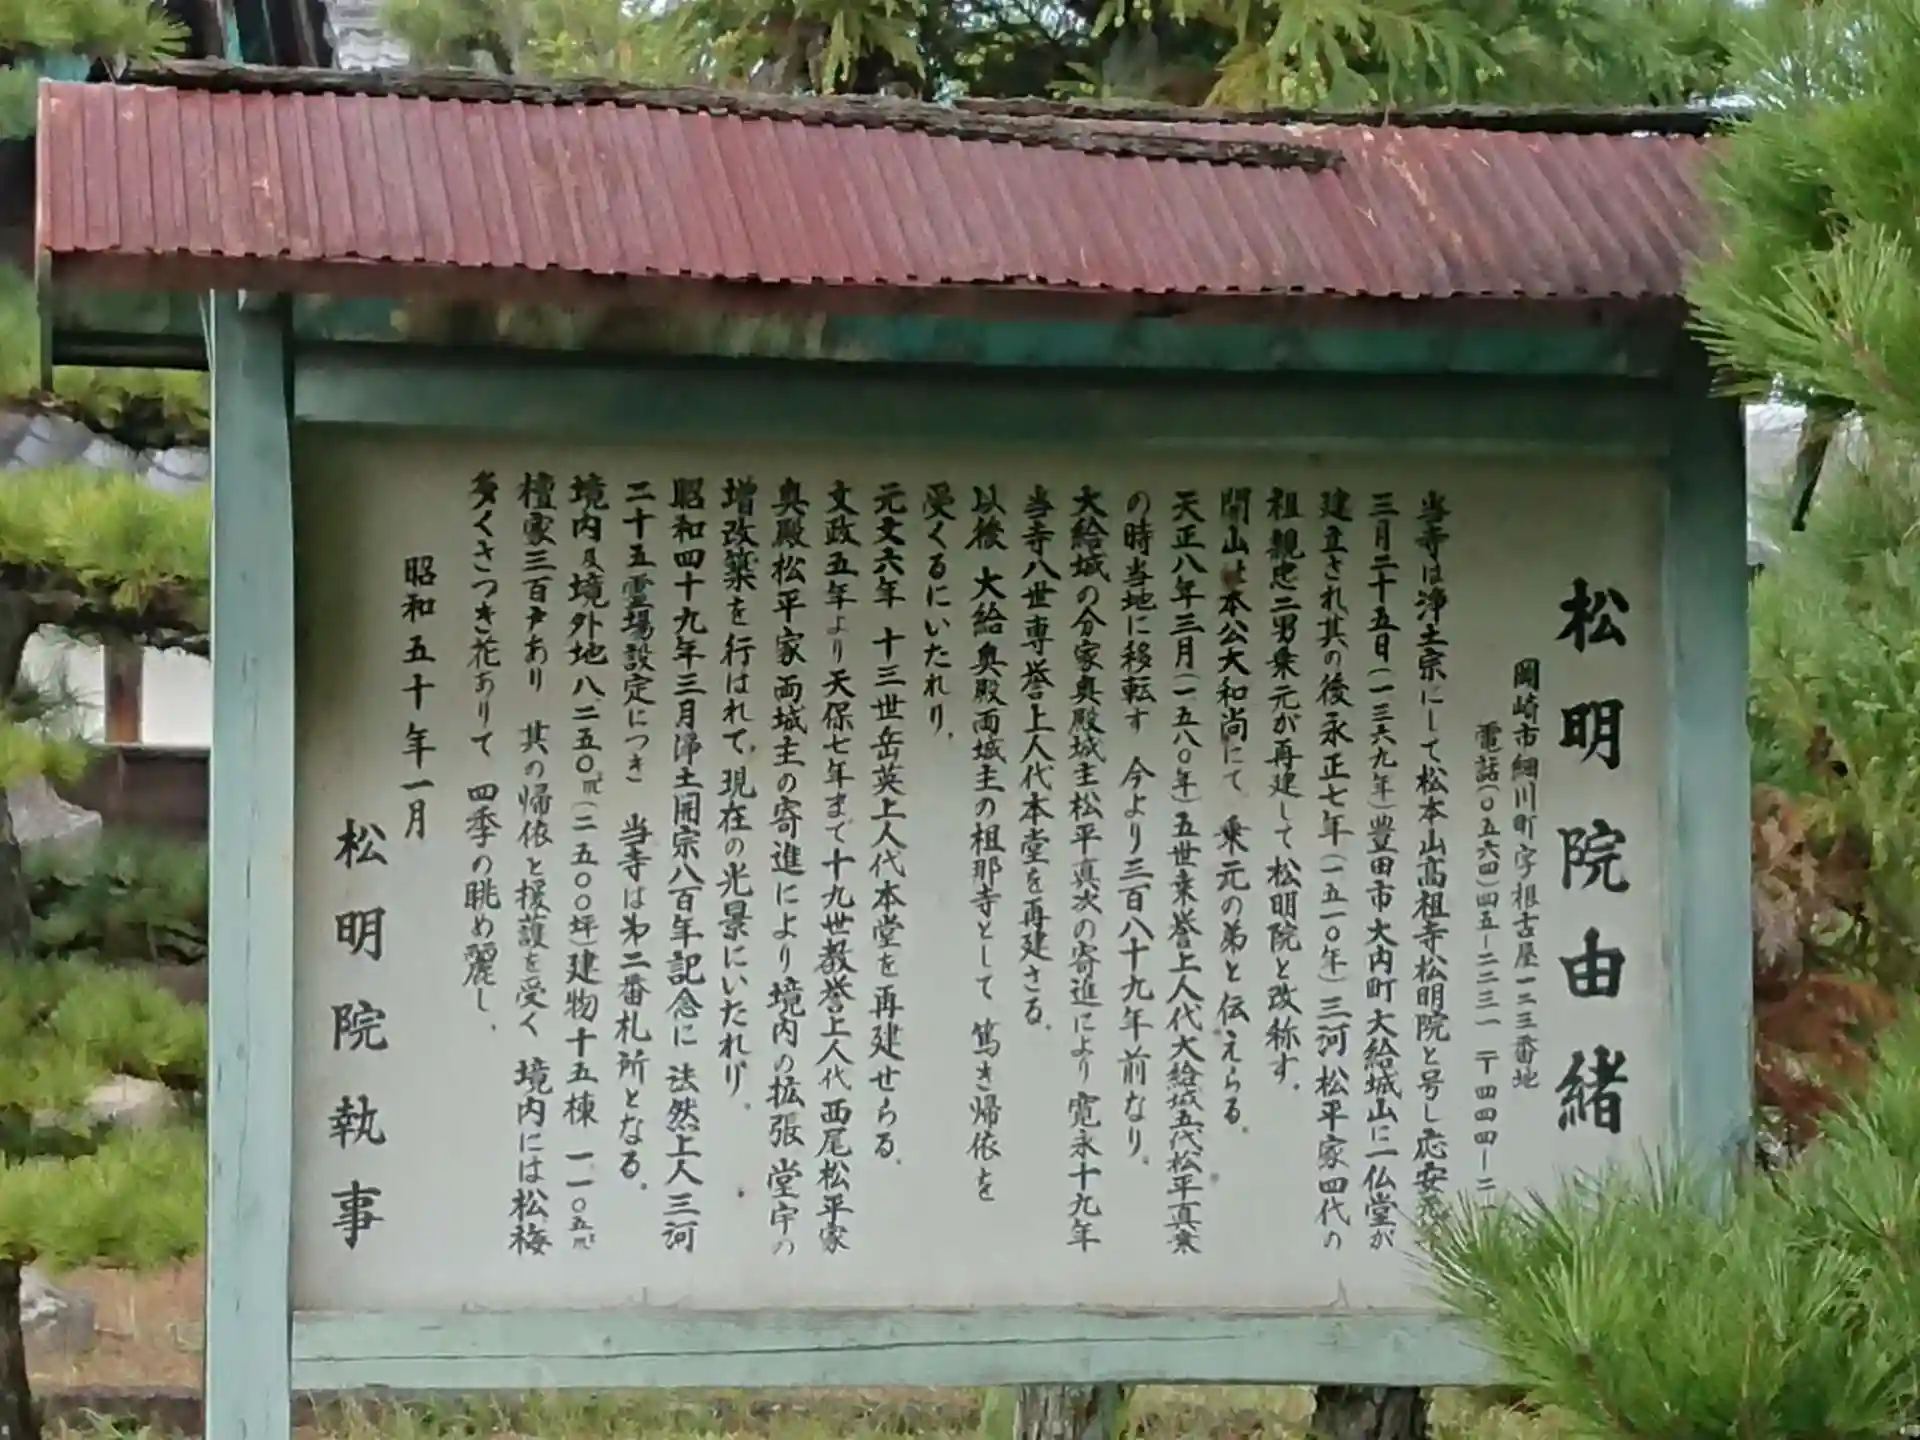 松明院由緒
岡崎市細川町字根古屋一二三番地
電話(〇五六四)四五―二二三一 〒四四四―二
当寺は浄土宗にして松本山高祖寺松明院と号し応安元年
三月二十五日(一三六九年)豊田市大内町大給城山に一仏堂が
建立され其の後永正七年(一五一〇年)三河松平家四代の
祖親忠二男乗元が再建して松明院と改称す.
開山は本公大和尚にて 乗元の弟と伝えらる.
天正八年三月(一五八〇年)五世乗誉上人代大給城五代松平真乗
の時当地に移転す 今より三百八十九年前なり.
大給城の分家奥殿城主松平真次の寄進により寛永十九年
当寺八世専誉上人代本堂を再建さる.
以後 大給奥殿両城主の祖那寺として 篤き帰依を
受くるにいたれり.
元文六年 十三世岳英上人代本堂を再建せらる.
文政五年より天保七年まで十九世教誉上人代西尾松平家
奥殿松平家両城主の寄進により境内の拡張堂宇の
増改築を行はれて現在の光景にいたれり.
昭和四十九年三月浄土開宗八百年記念に 法然上人三河
二十五霊場設定につき 当寺は第二番札所となる.
境内及境外地八二五〇㎡(二五〇〇坪)建物十五棟 一一〇五㎡
檀家三百戸あり 其の帰依と援護を受く 境内には松梅
多くさつき花ありて 四季の眺め麗し.
昭和五十年一月
松明院執事